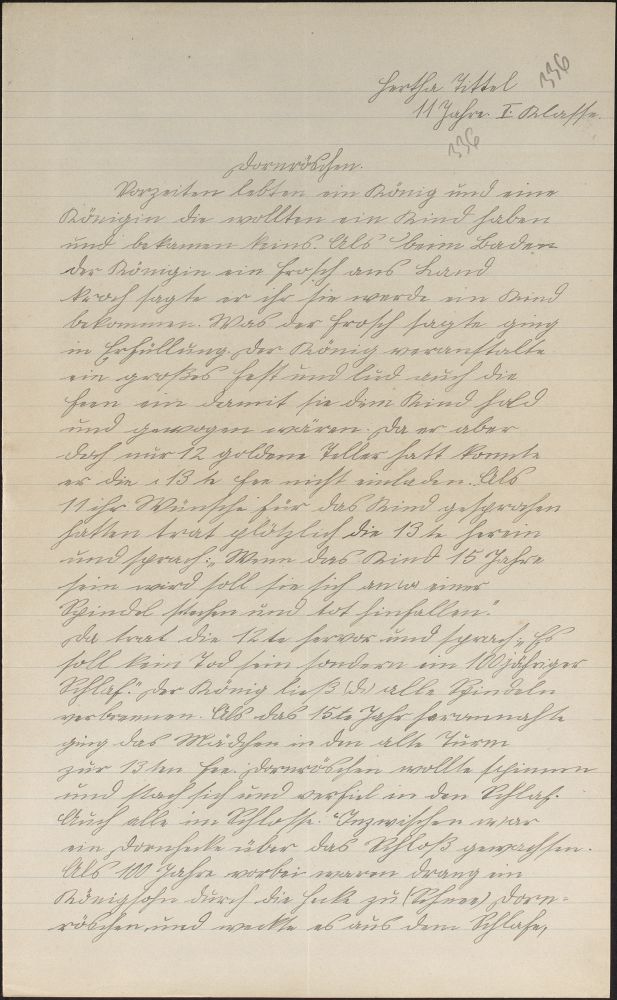 336
Hertha Tittel
11 Jahre. I. Klasse.
336
Dornröschen.
Vorzeiten lebten ein König und eine
Königin die wollten ein Kind haben
und bekamen keins. Als beim Baden
der Königin ein Frosch ans Land
kroch sagte er ihr sie werde ein Kind
bekommen. Was der Frosch sagte ging
in Erfüllung. Der König veranstalte
ein großes Fest und lud auch die
Feen ein damit sie dem Kind hold
und gewogen wären. Da er aber
doch nur 12 goldene Teller hatt konnte
er die 13te Fee nicht einladen. Als
11 ihr Wünsche für das Kind gesprochen
hatten trat plötzlich die 13te herein
und sprach: „Wenn das Kind 15 Jahre
sein wird soll sie sich an einer
Spindel stechen und tot hinfallen."
Da trat die 12te hervor und sprach: „Es
soll kein Tod sein sondern ein 100jähriger
Schlaf." Der König ließ (di) alle Spindeln
verbrennen. Als das 15te Jahr herannahte
ging das Mädchen in den alte Turm
zur 13ten Fee. Dornröschen wollte spinnen
und stach sich und verfiel in den Schlaf.
Auch alle im Schlosse. Inzwischen war
ein Dornhecke über das Schloß gewachsen.
Als 100 Jahre vorbei waren drang ein
Königsohn durch die Hecke zu (Schnee) Dorn-
röschen und weckte es aus dem Schlafe,